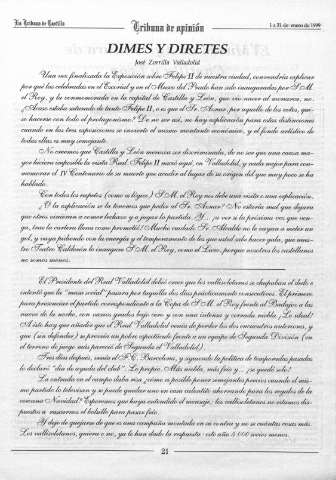 La Tribuna de Castilla
Tribuna de opinión
1 a 31 de enero de 1999
DIMES Y DIRETES
José Zorrilla Valladolid
Una vez finalizada la Exposición sobre Felipe II de nuestra ciudad, convendría explicar
por qué las celebradas en el Escorial y en el Museo del Prado han sido inauguradas por S.M.
el Rey, y la conmemorada en la capital de Castilla y León, que vio nacer al monarca, no.
¿Acaso estaba saturado de tanto Felipe II, o es que el Sr. Aznar, por aquello de los votos, qui-
so hacerse con todo el protagonismo? De no ser así, no hay explicación para estas distinciones
cuando en las tres exposiciones se invierte el mismo montante económico, y el fondo artístico de
todas ellas es muy semejante.
No creemos que Castilla y León merezca ser discriminada, de no ser que una causa ma-
yor hiciera imposible la visita Real. Felipe II nació aquí, en Valladolid, y nada mejor para con-
memorar el IV Centenario de su muerte que acudir al lugar de su origen del que muy poco se ha
hablado.
Con todos los respetos (como es lógico) S.M. el Rey nos debe una visita o una explicación.
¿O la explicación se la tenemos que pedir al Sr. Aznar? No estaría mal que dijera
que otros vinieron a comer lechazo y a jugar la partida. Y... ¡a ver si la próxima vez que ven-
ga, trae la cartera llena como prometió! Mucho cuidado Sr. Alcalde no le vayan a meter un
gol, y vaya pidiendo con la energía y el temperamento de los que usted sabe hacer gala, que nues-
tro Teatro Calderón lo inaugure S.M. el Rey, como el Liceo, porque nosotros los castellanos
no somos menos.
El Presidente del Real Valladolid debió creer que los vallisoletanos se chupaban el dedo e
intentó que la "masa social" pasara por taquilla dos días prácticamente consecutivos. El primero
para presenciar el partido correspondiente a la Copa de S.M. el Rey frente al Badajoz a las
nueve de la noche, con varios grados bajo cero y con una intensa y cerrada niebla. ¡Lo ideal!
A ésto hay que añadir que el Real Valladolid venía de perder los dos encuentros anteriores, y
que (sin ofender) se preveía un pobre espectáculo frente a un equipo de Segunda División (en
el terreno de juego más pareció de "Segunda el Valladolid).
Tres días después, venía el F.C. Barcelona, y siguiendo la política de temporadas pasadas
lo declaró "día de ayuda del club". Lo propio. Más niebla, más frío y... ¡se quedó solo!
La entrada en el campo daba risa, ¿cómo es posible poner semejantes precios cuando el mis-
mo partido lo televisan y se puede quedar uno en casa calentito ahorrando para los regalos de la
cercana Navidad? Esperamos que haya entendido el mensaje: los vallisoletanos no estamos dis-
puestos a rascarnos el bolsillo para pasar frío.
Y dejo de quejarse de que es una campaña montada en su contra y no se cuántas cosas más.
Los vallisoletanos, quiera o no, ya le han dado la respuesta: este año 5.000 socios menos.
21